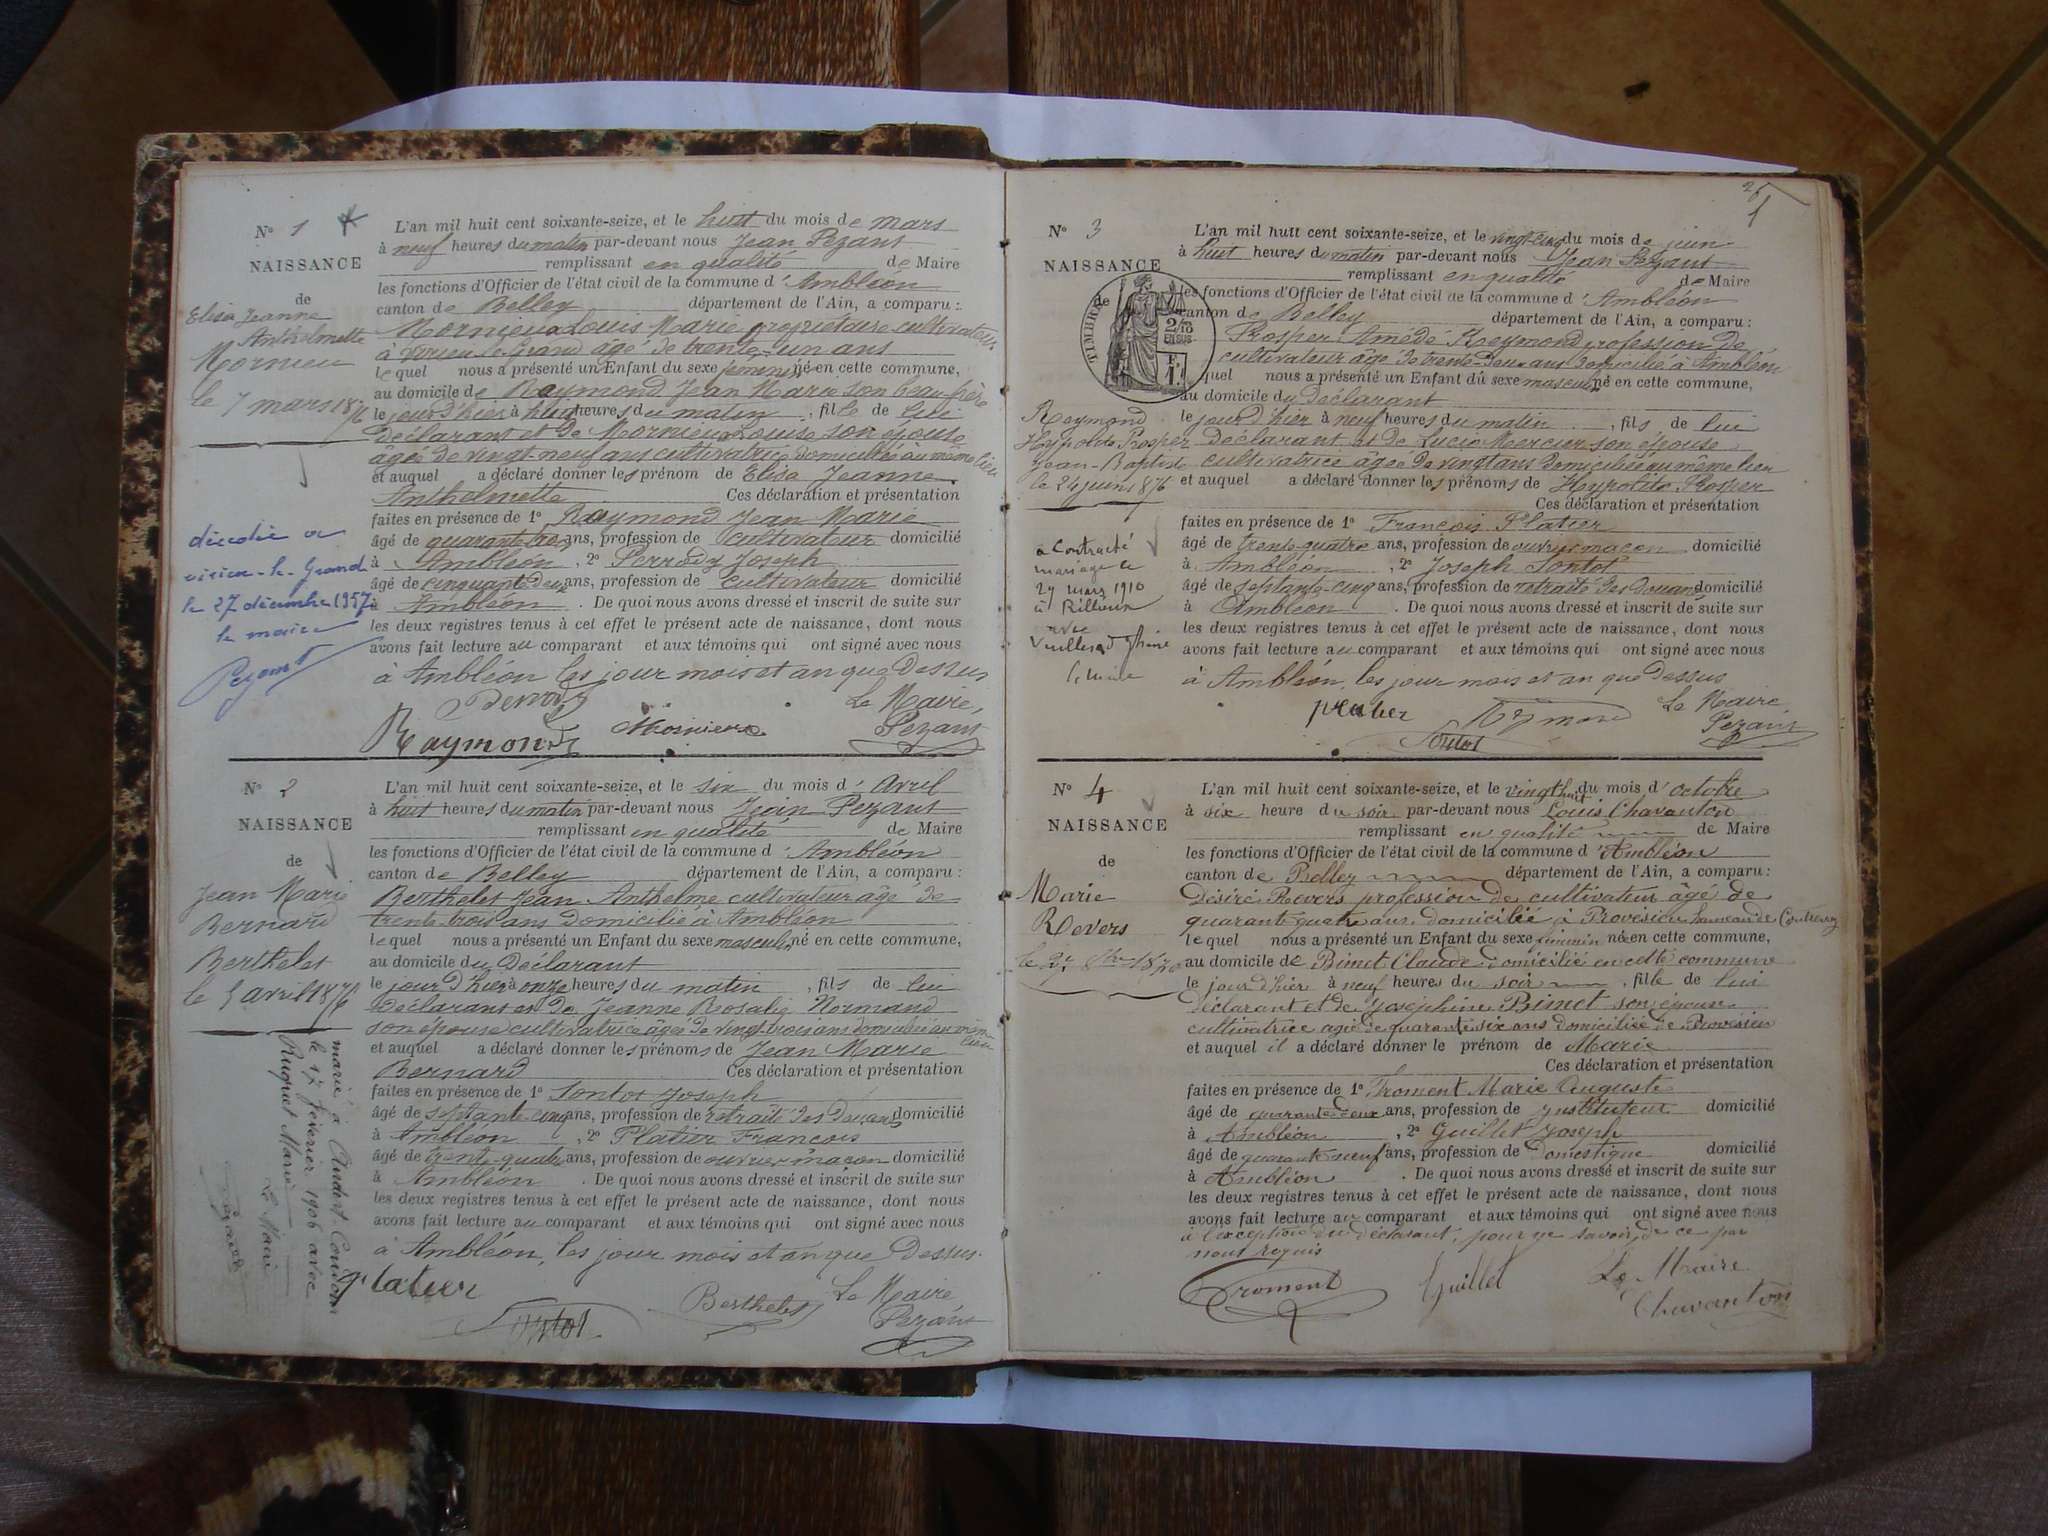 N° 1
NAISSANCE
de
Elisa Jeanne
Anthelmette
Mornieu
le 7 mars 1876
décédée a
virieu-le-Grand
le 27 décembre 1957
le maire
Pezant
L'an mil huit cent soixante-seize, et le huit du mois de mars
à neuf heures du matin par-devant nous Jean Pezant
remplissant en qualité de Maire
les fonctions d'Officier de l'état civil de la commune d'Ambléon
canton de Belley département de l'Ain, a comparu :
Mornieux Louis Marie propriétaire cultivateur
à Virieu le Grand âgé de trente-un ans
lequel nous a présenté un Enfant du sexe féminin né en cette commune,
au domicile de Raymond Jean Marie son beau-père
le jour d'hier à heures du matin, fille de lui
déclarant et de Mornieux Louise son épouse
âgée de vingt neuf ans cultivatrice domiciliée au même lieu
et auquel a déclaré donner les prénom de Elisa Jeanne
Anthelmette Ces déclaration et présentation
faites en présence de 1° Raymond Jean Marie
âgé de quarante ans, profession de cultivateur domicilié
à Ambléon, 2° Perrody Joseph
âgé de cinquante deux ans, profession de cultivateur domicilié
à Ambléon. De quoi nous avons dressé et inscrit de suite sur
les deux registres tenus à cet effet le présent acte de naissance, dont nous
avons fait lecture au comparant et aux témoins qui ont signé avec nous
à Ambléon, les jour mois et an que dessus
Perrody Le Maire,
Raymond Mornieux Pezant
N° 2
NAISSANCE
de
Jean Marie
Bernard
Berthelet
le 5 avril 1876
marié à Andert-Condon
le 17 février 1906 avec
Ruguet Marie
Le Maire
L'an mil huit cent soixante-seize, et le six du mois d'avril
à huit heures du matin par-devant nous Jean Pezant
remplissant en qualité de Maire
les fonctions d'Officier de l'état civil de la commune d'Ambléon
canton de Belley département de l'Ain, a comparu :
Berthelet Jean Anthelme cultivateur âgé de
trente-trois ans domicilié à Ambléon
lequel nous a présenté un Enfant du sexe masculin né en cette commune,
au domicile du Déclarant
le jour d'hier à onze heures du matin, fils de lui
déclarant et de Jeanne Rosalie Normand
son épouse cultivatrice âgée de vingt trois ans domiciliée au même lieu
et auquel a déclaré donner les prénoms de Jean Marie
Bernard Ces déclaration et présentation
faites en présence de 1° Sontot Joseph
âgé de septante cinq ans, profession de retraité des Douanes domicilié
à Ambléon, 2° Platier François
âgé de trente-quatre ans, profession de ouvrier maçon domicilié
à Ambléon. De quoi nous avons dressé et inscrit de suite sur
les deux registres tenus à cet effet le présent acte de naissance, dont nous
avons fait lecture au comparant et aux témoins qui ont signé avec nous
à Ambléon, les jour mois et an que Dessus.
Platier Berthelet Le Maire
Sontot Pezant
N° 3
NAISSANCE
de
TIMBRE
2/10
EN SUS
Reymond
Heypolite Prosper
Jean-Baptiste
le 24 juin 1876
a contracté
mariage le
29 mars 1910
à Rillieux
avec
L'an mil huit cent soixante-seize, et le vingt-cinq du mois de juin
à huit heures du matin par-devant nous Jean Pezant
remplissant en qualité de Maire
les fonctions d'Officier de l'état civil de la commune d'Ambléon
canton de Belley département de l'Ain, a comparu :
Prosper Amédé Reymond profession de
cultivateur âgé de trente-deux ans domicilié à Ambléon
quel nous a présenté un Enfant du sexe masculin né en cette commune,
au domicile du Déclarant
le jour d'hier à neuf heures du matin, fils de lui
Déclarant et de Lucie Mercier son épouse
cultivatrice âgée de vingt ans Domiciliée au même lieu
et auquel a déclaré donner les prénoms de Heypolite Prosper
Ces déclaration et présentation
faites en présence de 1° François Platier
âgé de trente-quatre ans, profession de ouvrier maçon domicilié
à Ambléon, 2° Joseph Sontot
âgé de septante-cinq ans, profession de retraité des Douanes domicilié
à Ambléon. De quoi nous avons dressé et inscrit de suite sur
les deux registres tenus à cet effet le présent acte de naissance, dont nous
avons fait lecture au comparant et aux témoins qui ont signé avec nous
à Ambléon, les jour mois et an que dessus
Platier Reymond Le Maire,
Sontot Pezant
N° 4
NAISSANCE
de
Marie
Revers
L'an mil huit cent soixante-seize, et le vingt huit du mois d'octobre
à six heure du soir par-devant nous Louis Chavanton
remplissant en qualité de Maire
les fonctions d'Officier de l'état civil de la commune d'Ambléon
canton de Belley département de l'Ain, a comparu :
Désiré Revers profession de cultivateur âgé de
quarante quatre ans domiciliée à Provesieu hameau de Contrevoz
lequel nous a présenté un Enfant du sexe féminin née en cette commune,
au domicile de Bimet Claude domicilié en cette commune
le jour d'hier à neuf heures du soir, fille de lui
déclarant et de Joséphine Bimet son épouse
cultivatrice agée de quarante six ans domiciliée de Provésieu
et auquel il a déclaré donner le prénom de Marie
Ces déclaration et présentation
faites en présence de 1° Froment Marie Auguste
âgé de quarante deux ans, profession de Instituteur domicilié
à Ambléon, 2° Guillet Joseph
âgé de quarante neuf ans, profession de Domestique domicilié
à Ambléon. De quoi nous avons dressé et inscrit de suite sur
les deux registres tenus à cet effet le présent acte de naissance, dont nous
avons fait lecture au comparant et aux témoins qui ont signé avec nous
à l'exception du déclarant, pour ne savoir, de ce par
nous requis
Froment Guillet Le Maire
Chavanton